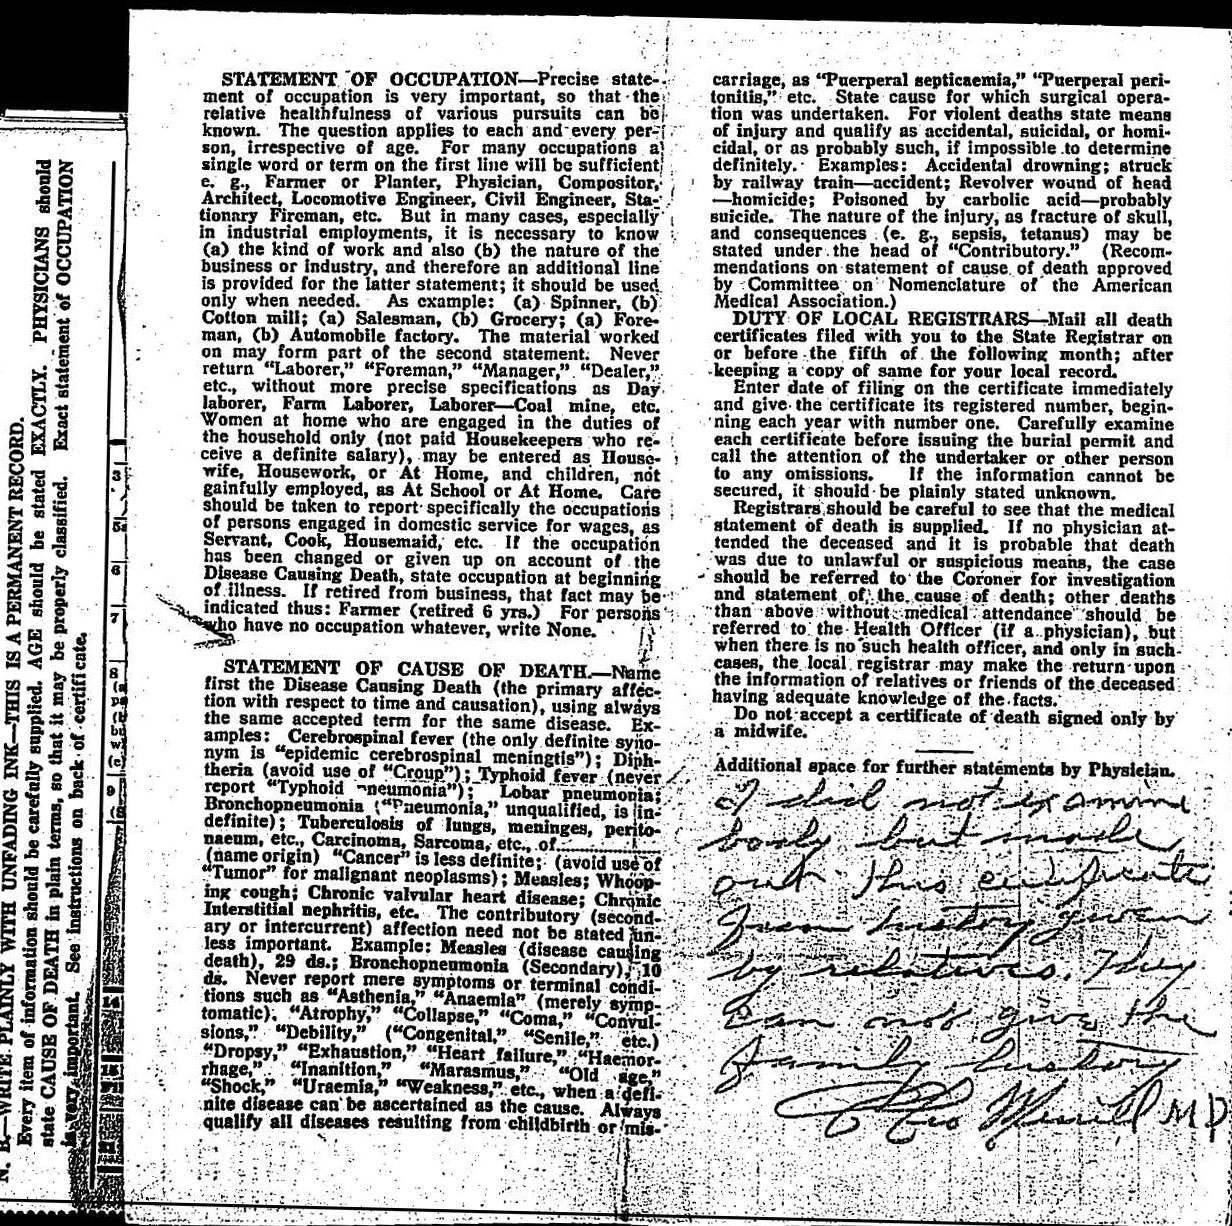 N. B.—WRITE PLAINLY WITH UNFADING INK—THIS IS A PERMANENT RECORD.
Every item of information should be carefully supplied. AGE should be stated EXACTLY. PHYSICIANS should
state CAUSE OF DEATH in plain terms, so that it may be properly classified. Exact statement of OCCUPATION
is very important. See instructions on back of certificate.
3
5
6
7
8
9
14
STATEMENT OF OCCUPATION—Precise state-
ment of occupation is very important, so that the
relative healthfulness of various pursuits can be
known. The question applies to each and every per-
son, irrespective of age. For many occupations a
single word or term on the first line will be sufficient
e. g., Farmer or Planter, Physician, Compositor,
Architect, Locomotive Engineer, Civil Engineer, Sta-
tionary Fireman, etc. But in many cases, especially
in industrial employments, it is necessary to know
(a) the kind of work and also (b) the nature of the
business or industry, and therefore an additional line
is provided for the latter statement; it should be used
only when needed. As example: (a) Spinner, (b)
Cotton mill; (a) Salesman, (b) Grocery; (a) Fore-
man, (b) Automobile factory. The material worked
on may form part of the second statement. Never
return "Laborer," "Foreman," "Manager," "Dealer,"
etc., without more precise specifications as Day
laborer, Farm Laborer, Laborer—Coal mine, etc.
Women at home who are engaged in the duties of
the household only (not paid Housekeepers who re-
ceive a definite salary), may be entered as House-
wife, Housework, or At Home, and children, not
gainfully employed, as At School or At Home. Care
should be taken to report specifically the occupations
of persons engaged in domestic service for wages, as
Servant, Cook, Housemaid, etc. If the occupation
has been changed or given up on account of the
Disease Causing Death, state occupation at beginning
of illness. If retired from business, that fact may be
indicated thus: Farmer (retired 6 yrs.) For persons
who have no occupation whatever, write None.
STATEMENT OF CAUSE OF DEATH.—Name
first the Disease Causing Death (the primary affec-
tion with respect to time and causation), using always
the same accepted term for the same disease. Ex-
amples: Cerebrospinal fever (the only definite syno-
nym is "epidemic cerebrospinal meningtis"); Diph-
theria (avoid use of "Croup"); Typhoid fever (never
report "Typhoid pneumonia"); Lobar pneumonia;
Bronchopneumonia ("Pneumonia," unqualified, is in-
definite); Tuberculosis of lungs, meninges, perito-
naeum, etc., Carcinoma, Sarcoma, etc., of..............
(name origin) "Cancer" is less definite; (avoid use of
"Tumor" for malignant neoplasms); Measles; Whoop-
ing cough; Chronic valvular heart disease; Chronic
Interstitial nephritis, etc. The contributory (second-
ary or intercurrent) affection need not be stated un-
less important. Example: Measles (disease causing
death), 29 ds.; Bronchopneumonia (Secondary), 10
ds. Never report mere symptoms or terminal condi-
tions such as "Asthenia," "Anaemia" (merely symp-
tomatic), "Atrophy," "Collapse," "Coma," "Convul-
sions," "Debility," ("Congenital," "Senile," etc.)
"Dropsy," "Exhaustion," "Heart failure," "Haemor-
rhage," "Inanition," "Marasmus," "Old age,"
"Shock," "Uraemia," "Weakness," etc., when a defi-
nite disease can be ascertained as the cause. Always
qualify all diseases resulting from childbirth or mis-
carriage, as "Puerperal septicaemia," "Puerperal peri-
tonitis," etc. State cause for which surgical opera-
tion was undertaken. For violent deaths state means
of injury and qualify as accidental, suicidal, or homi-
cidal, or as probably such, if impossible to determine
definitely. Examples: Accidental drowning; struck
by railway train—accident; Revolver wound of head
—homicide; Poisoned by carbolic acid—probably
suicide. The nature of the injury, as fracture of skull,
and consequences (e. g., sepsis, tetanus) may be
stated under the head of "Contributory." (Recom-
mendations on statement of cause of death approved
by Committee on Nomenclature of the American
Medical Association.)
DUTY OF LOCAL REGISTRARS—Mail all death
certificates filed with you to the State Registrar on
or before the fifth of the following month; after
keeping a copy of same for your local record.
Enter date of filing on the certificate immediately
and give the certificate its registered number, begin-
ning each year with number one. Carefully examine
each certificate before issuing the burial permit and
call the attention of the undertaker or other person
to any omissions. If the information cannot be
secured, it should be plainly stated unknown.
Registrars should be careful to see that the medical
statement of death is supplied. If no physician at-
tended the deceased and it is probable that death
was due to unlawful or suspicious means, the case
should be referred to the Coroner for investigation
and statement of the cause of death; other deaths
than above without medical attendance should be
referred to the Health Officer (if a physician), but
when there is no such health officer, and only in such
cases, the local registrar may make the return upon
the information of relatives or friends of the deceased
having adequate knowledge of the facts.
Do not accept a certificate of death signed only by
a midwife.
Additional space for further statements by Physician.
I did not examine
body but made
out this certificate
from history given
by relatives. They
can not give the
family history
Merrill MD